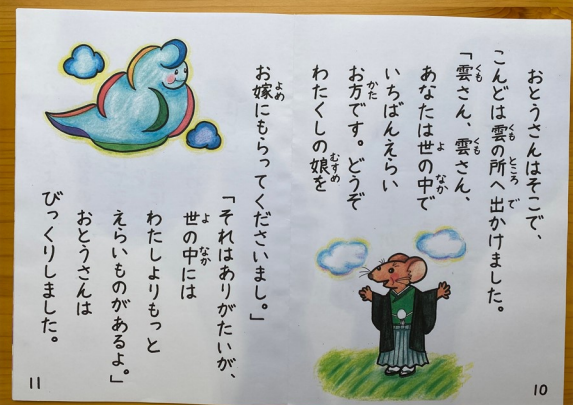 おとうさんはそこで、
こんどは雲の所へ出かけました。
「雲さん、雲さん、
あなたは世の中で
いちばんえらい
お方です。どうぞ
わたくしの娘を
お嫁にもらってくださいまし。」
「それはありがたいが、
世の中には
わたしよりもっと
えらいものがあるよ。」
おとうさんは
びっくりしました。
10
11